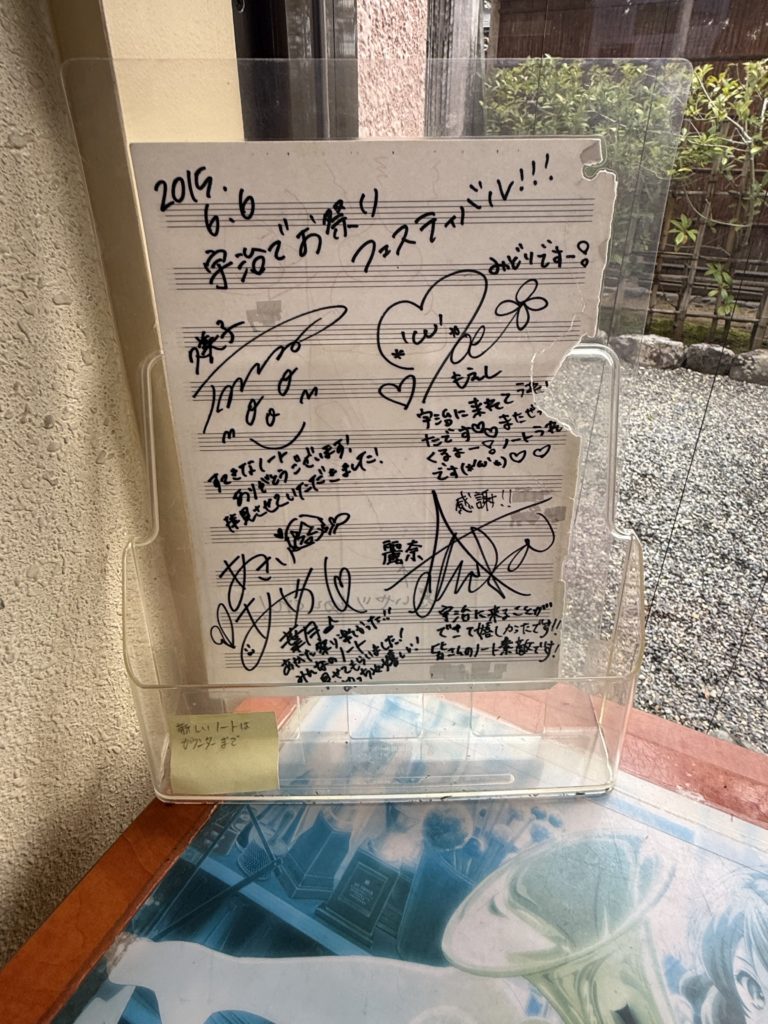 2015.
6.6
宇治でお祭り
フェスティバル!!!
みどりですー!
久美子
'ω'
もえし
すてきなノート
ありがとうございます!
拝見させていただきました!
宇治に来れてうれし
たです♡♡またぜっ
くるよー!ノートうれ
です(*'ω'*)♡♡
感謝!!
麗奈
あさい
あやか
葉月♪
あがた祭り楽しかった!!
みんなのノート
見せてもらいました!
めっちゃ嬉しい!
宇治に来ることが
できて嬉しかったです!!
皆さんのノート素敵です!
新しいノートは
カウンターまで